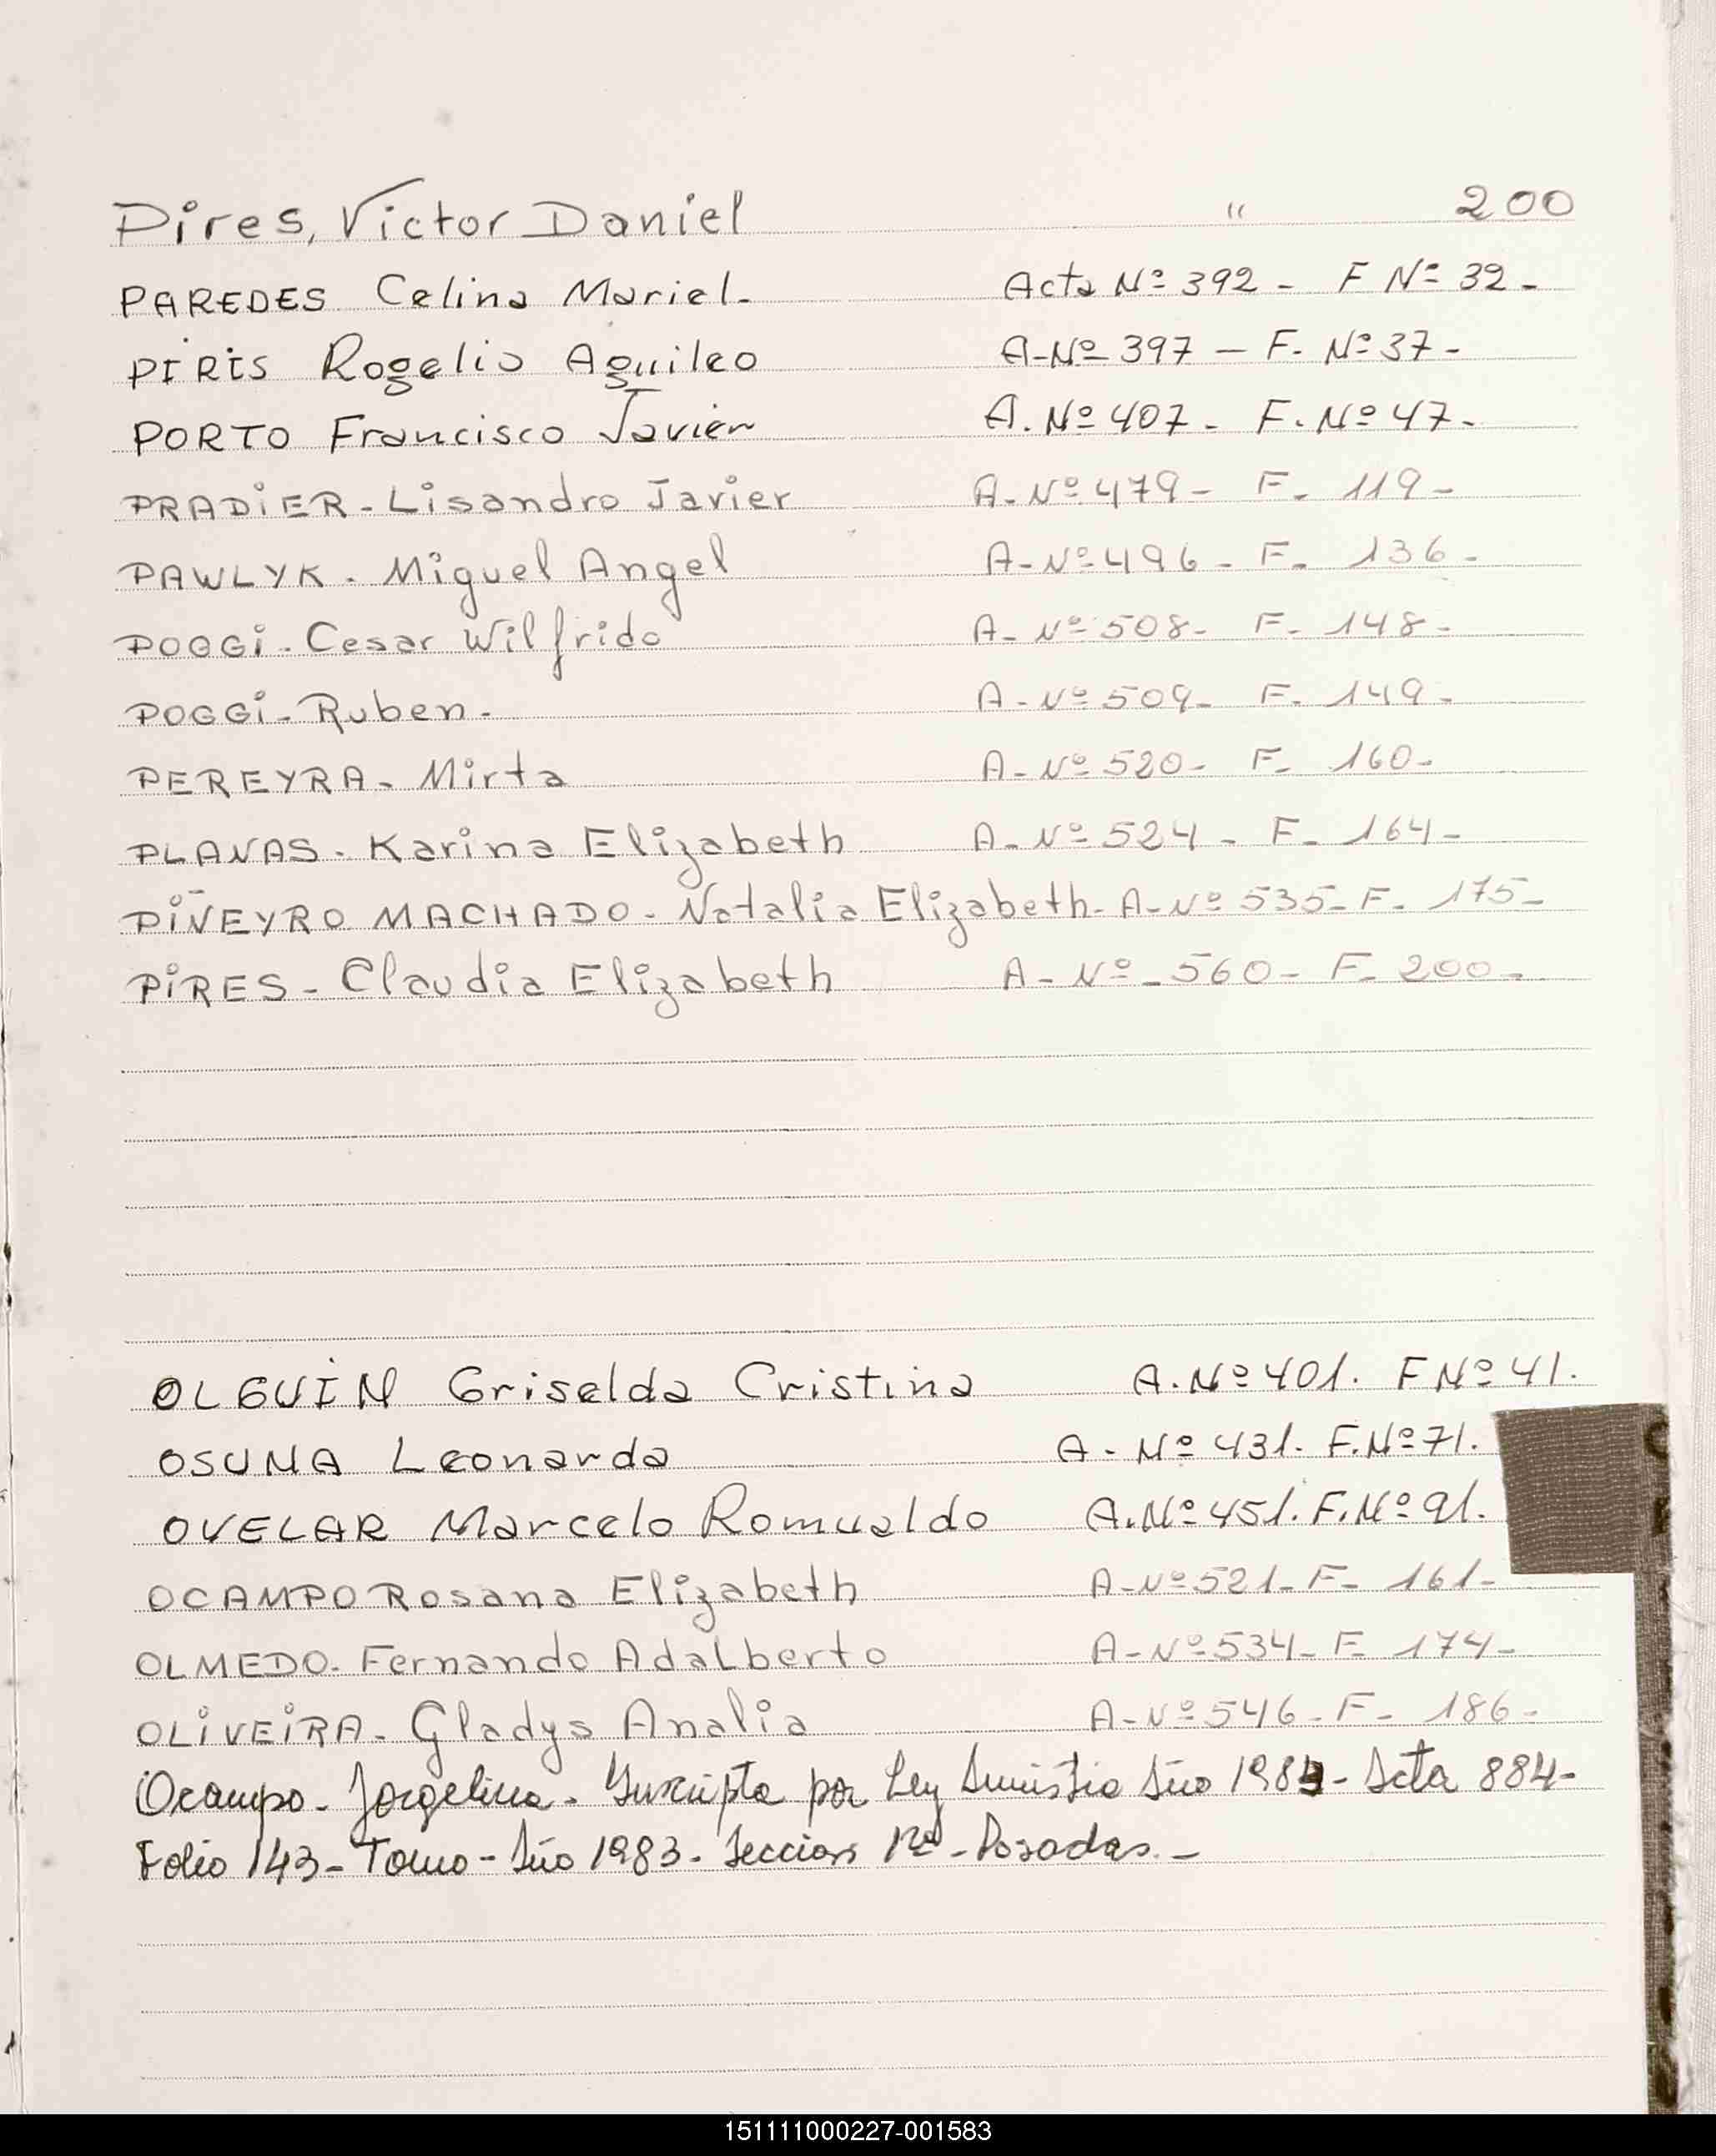 Pires, Victor Daniel " 200
PAREDES Celina Mariel- Acta Nº 392 - F Nº 32-
PIRIS Rogelio Aquileo A-Nº 397 - F. Nº 37-
PORTO Francisco Javier A. Nº 407- F. Nº 47-
PRADIER- Lisandro Javier A- Nº 479- F- 119-
PAWLYK- Miguel Angel A- Nº 496- F- 136-
POGGI- Cesar Wilfrido A- Nº 508- F- 148-
POGGI- Ruben- A- Nº 509- F- 149-
PEREYRA- Mirta A- Nº 520- F- 160-
PLANAS- Karina Elizabeth A- Nº 524- F- 164-
PIÑEYRO MACHADO- Natalia Elizabeth- A- Nº 535- F- 175-
PIRES- Claudia Elizabeth A- Nº- 560- F- 200-
OLGUIN Griselda Cristina A. Nº 401. F Nº 41.
OSUNA Leonarda A- Nº 431. F. Nº 71.
OVELAR Marcelo Romualdo A. Nº 451. F. Nº 91.
OCAMPO Rosana Elizabeth A- Nº 521- F- 161-
OLMEDO- Fernando Adalberto A- Nº 534- F- 174-
OLIVEIRA- Gladys Analia A- Nº 546- F- 186-
Ocampo- Jorgelina- Inscripta por Ley Amnistia Año Acta 884-
Folio 143- Tomo- Año 1983- Seccion 1ra- Posadas.-
151111000227-001583